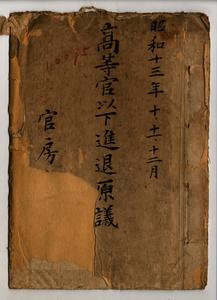 昭和十三年十、十一、十二月
高等官以下進退原議
官房